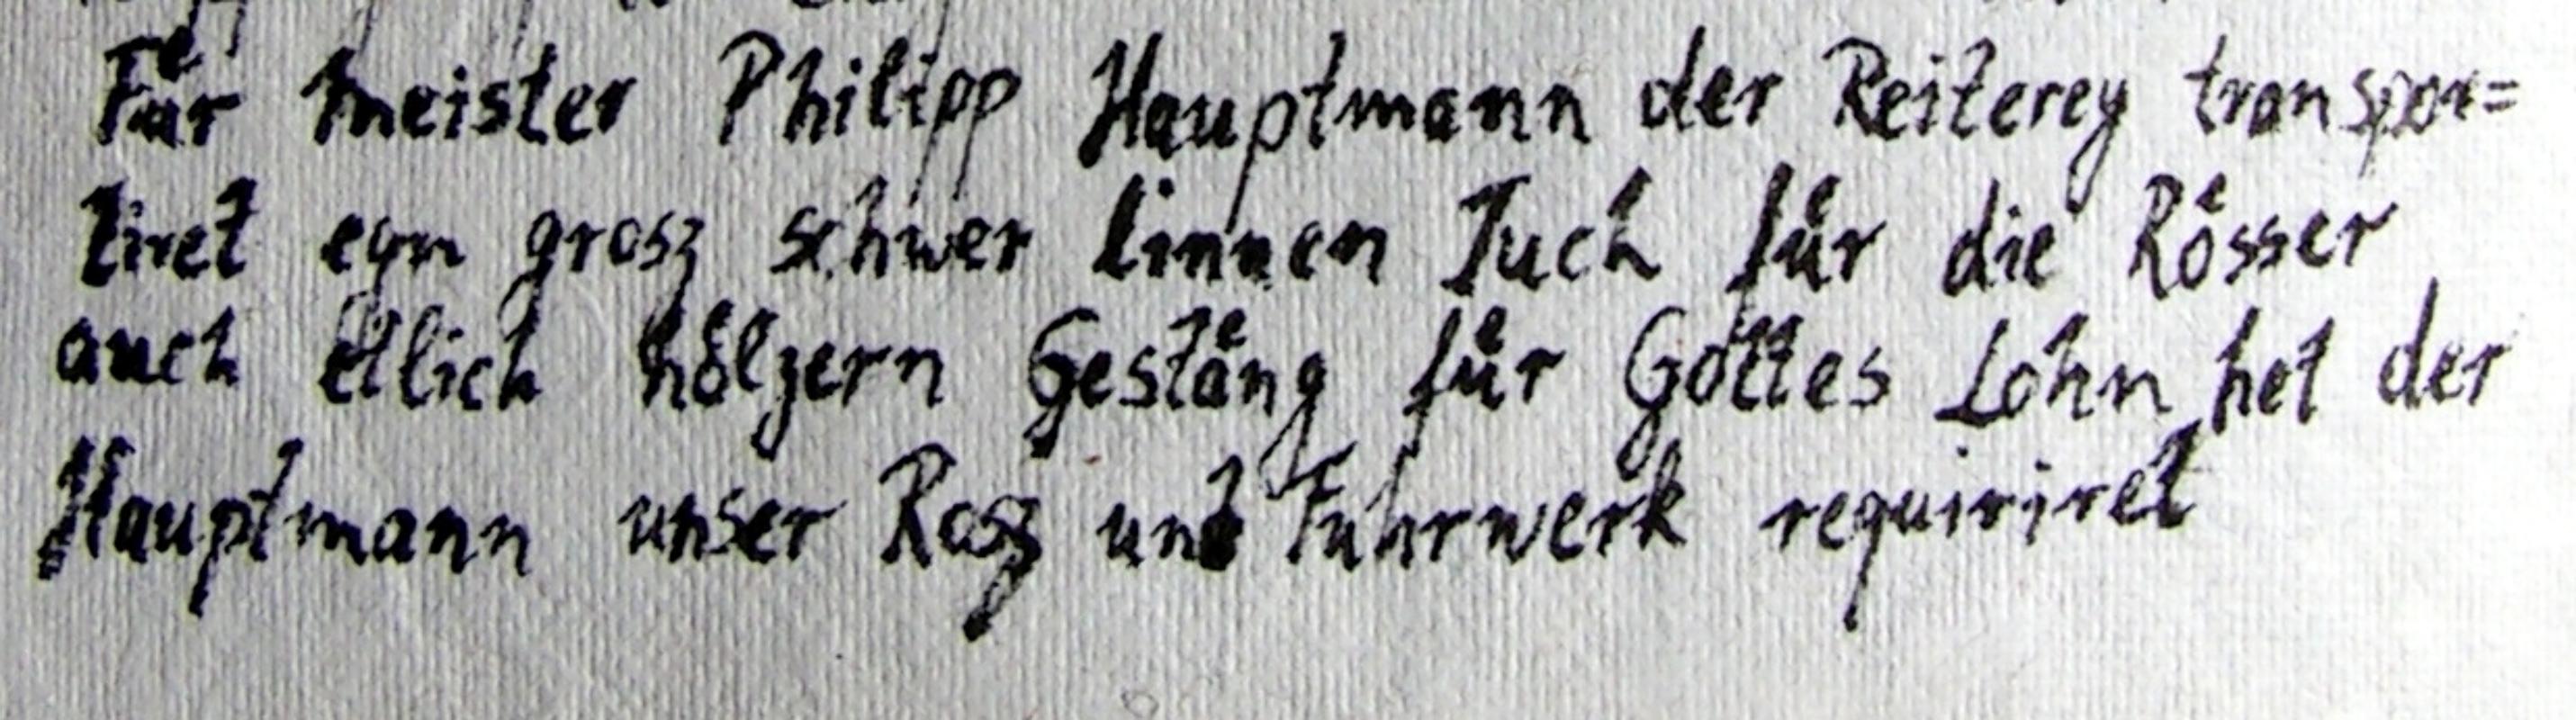 Fuͤr meister Philipp Hauptmann der Reiterey transpor=
tiret eyn grosz schwer linnen Tuch fuͤr die Roͤsser
auch etlich hoͤlzern Gestaͤng fuͤr Gottes Lohn het der
Hauptmann unser Rosz und Fuhrwerk requiriret